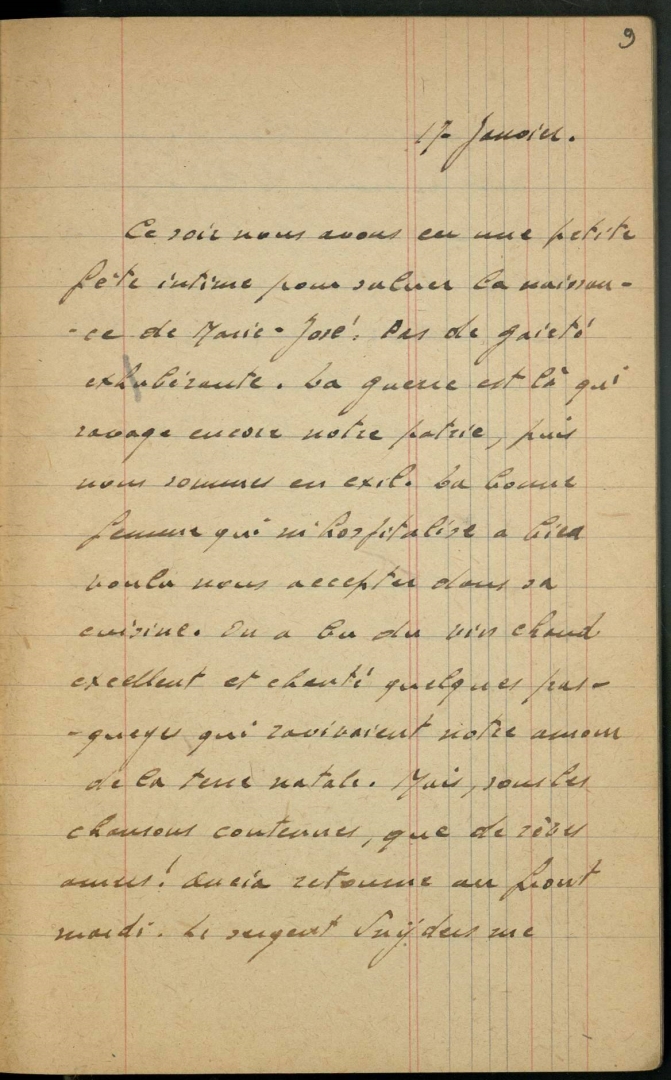 9
17 Janvier.
Ce soir nous avons eu une petite
fête intime pour saluer la naissan-
-ce de Marie-José. Pas de gaieté
exhubérante. La guerre est là qui
ravage encore notre patrie, puis
nous sommes en exil. La bonne
femme qui m'hospitalise a bien
voulu nous accepter dans sa
cuisine. On a bu du vin chaud
excellent et chanté quelques pas-
-queyes qui ravivaient notre amour
de la terre natale. Mais, sous les
chansons contenues, que de rêves
amers! retourne au front
mardi. Le sergent Snÿders me